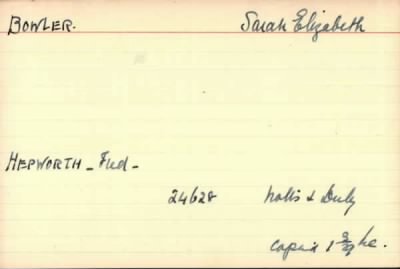 BOWLER. Sarah Elizabeth
HEPWORTH - Fred -
24628 Notts & Derby
Cap'n 1